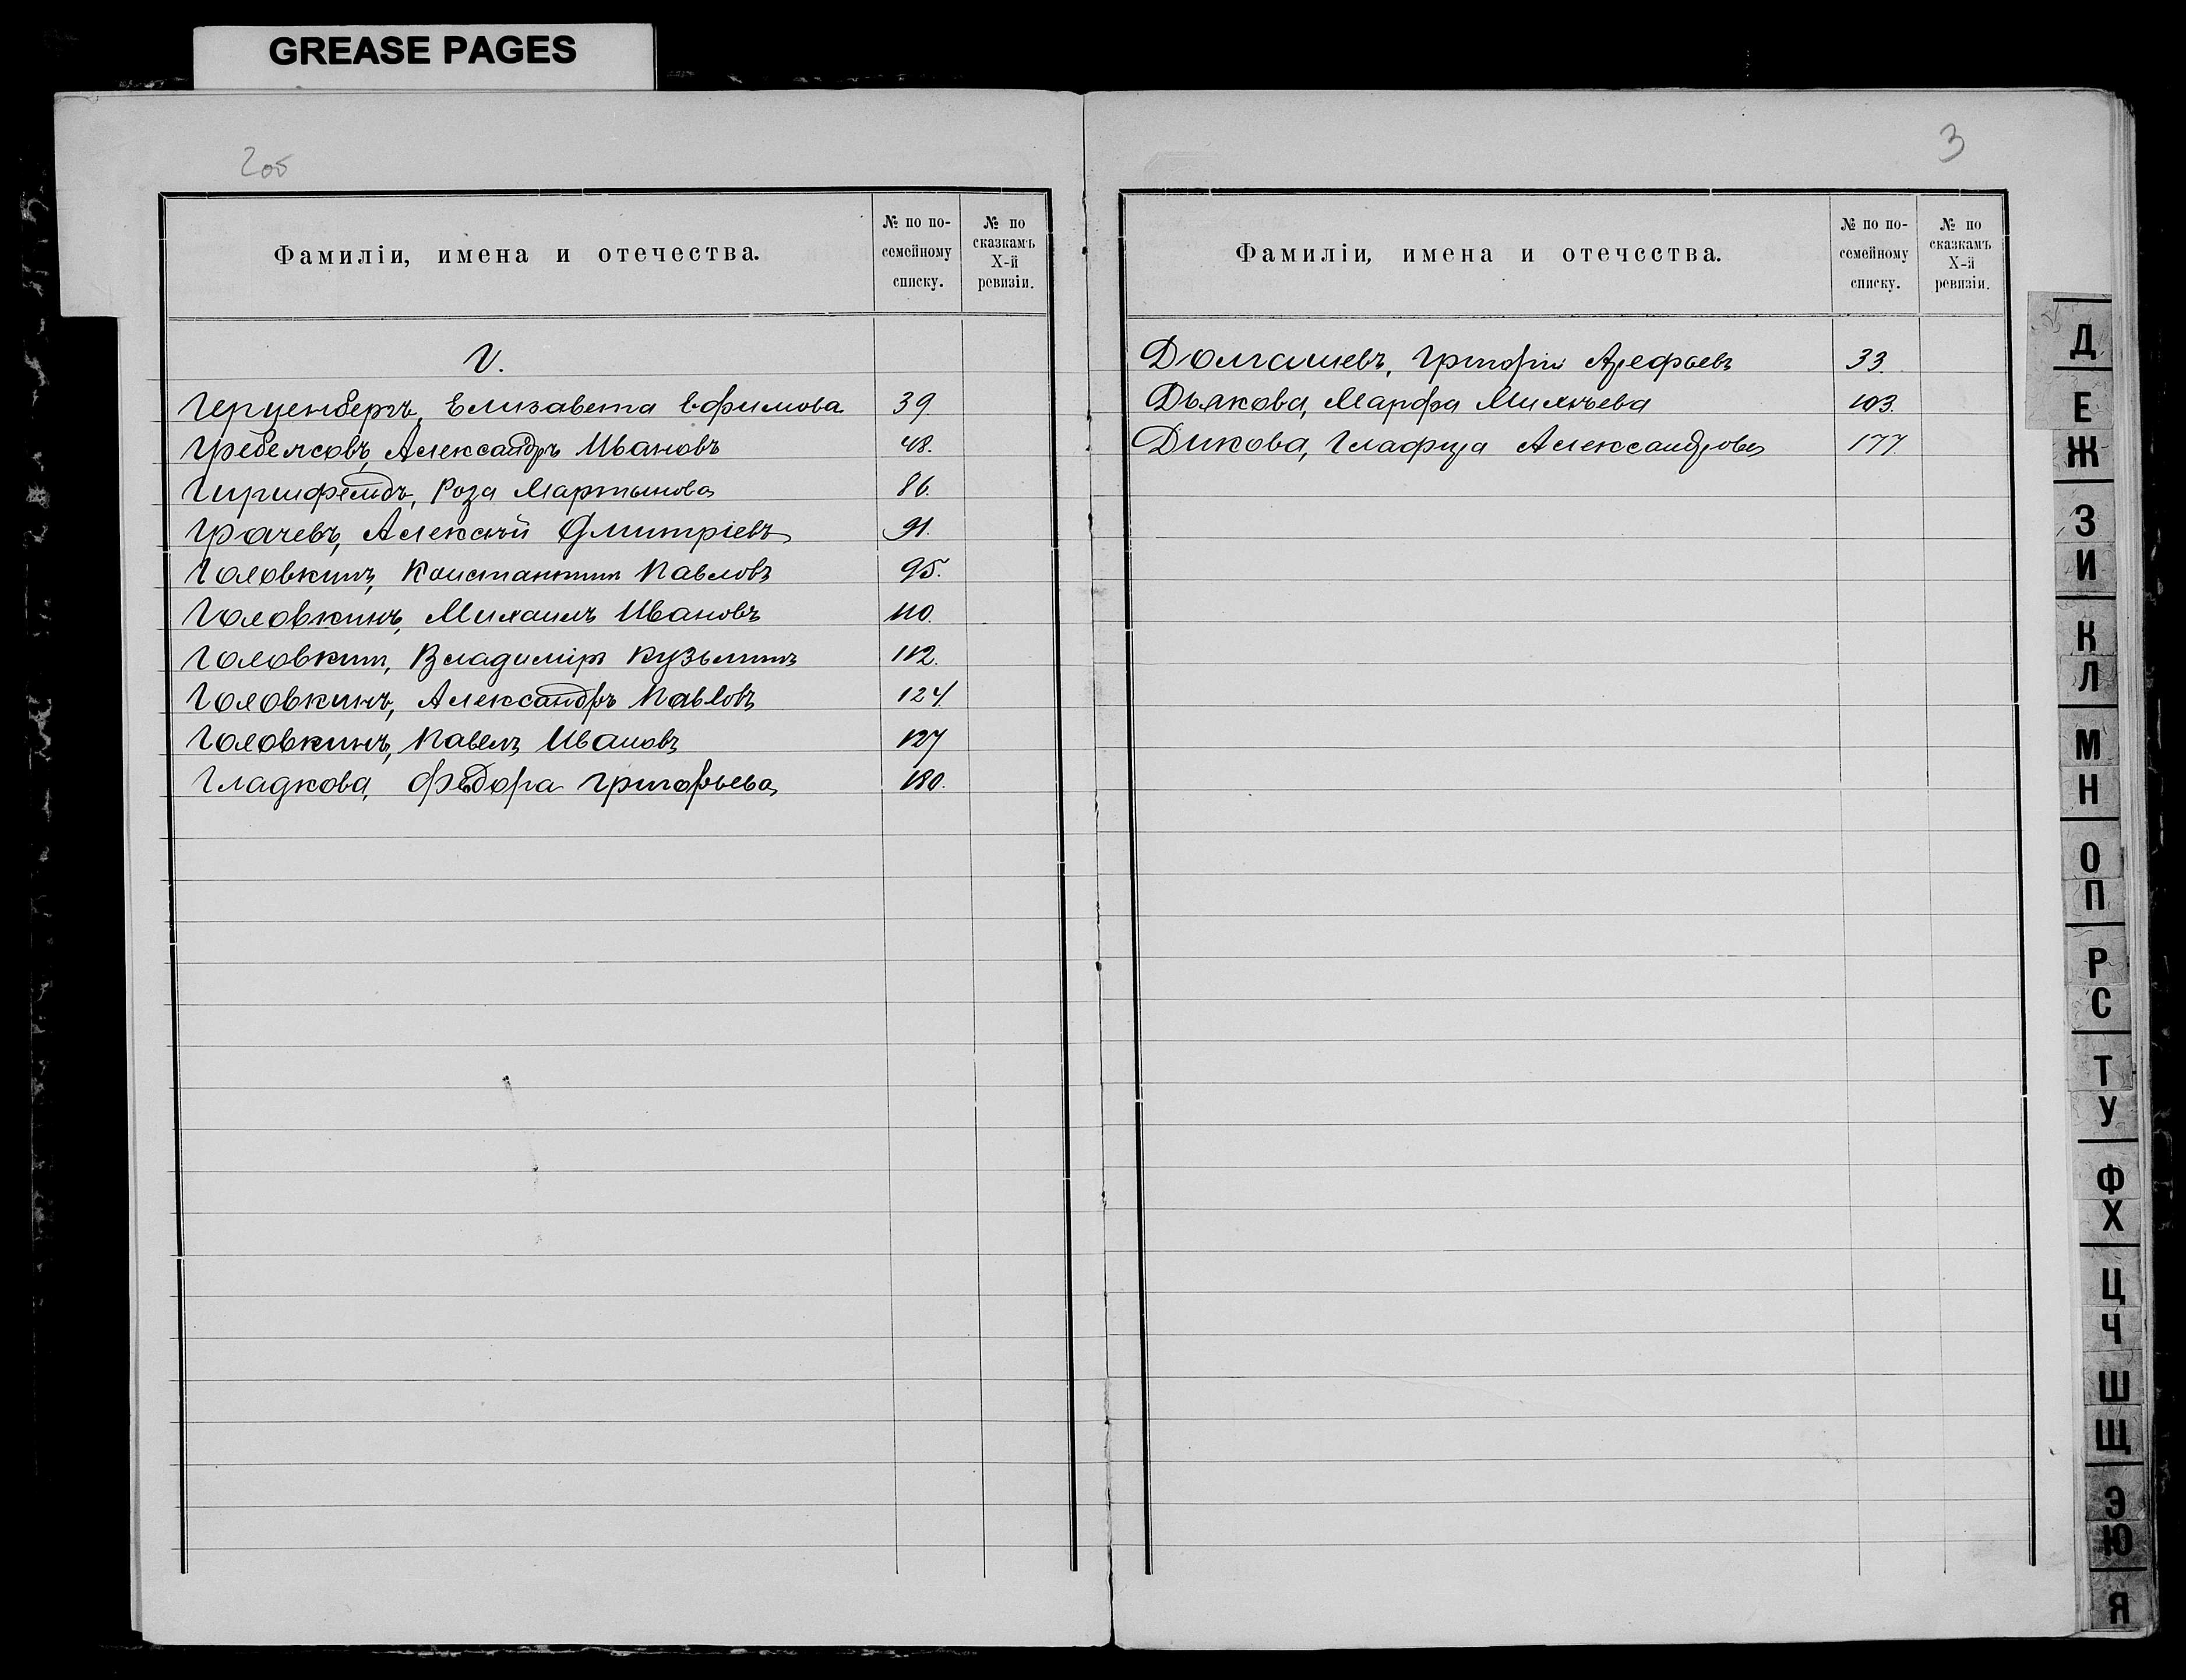 GREASE PAGES
2об
Фамиліи, имена и отечества.
№ по по-
семейному
списку.
№ по
сказкамъ
X-й
ревизіи.
Г.
Герценбергъ, Елизавета Ефимова 39.
Гребенсовъ, Александръ Ивановъ 48.
Гиршфельдъ, Роза Мартынова 86.
Грачевъ, Алексѣй Дмитріевъ 91.
Головкинъ, Константинъ Павловъ 95.
Головкинъ, Михаилъ Ивановъ 110.
Головкинъ, Владиміръ Кузьминъ 112.
Головкинъ, Александръ Павловъ 124.
Головкинъ, Павелъ Ивановъ 127
Гладкова, Ѳедора Григорьева 180.
3
Фамиліи, имена и отечества.
№ по по-
семейному
списку.
№ по
сказкамъ
X-й
ревизіи.
Григорій Арефьевъ 33.
Дьякова, Марфа Михѣева 103.
Дикова, Глафира Александрова 177.
Д
Е
Ж
З
И
К
Л
М
Н
О
П
Р
С
Т
У
Ф
Х
Ц
Ч
Ш
Щ
Э
Ю
Я